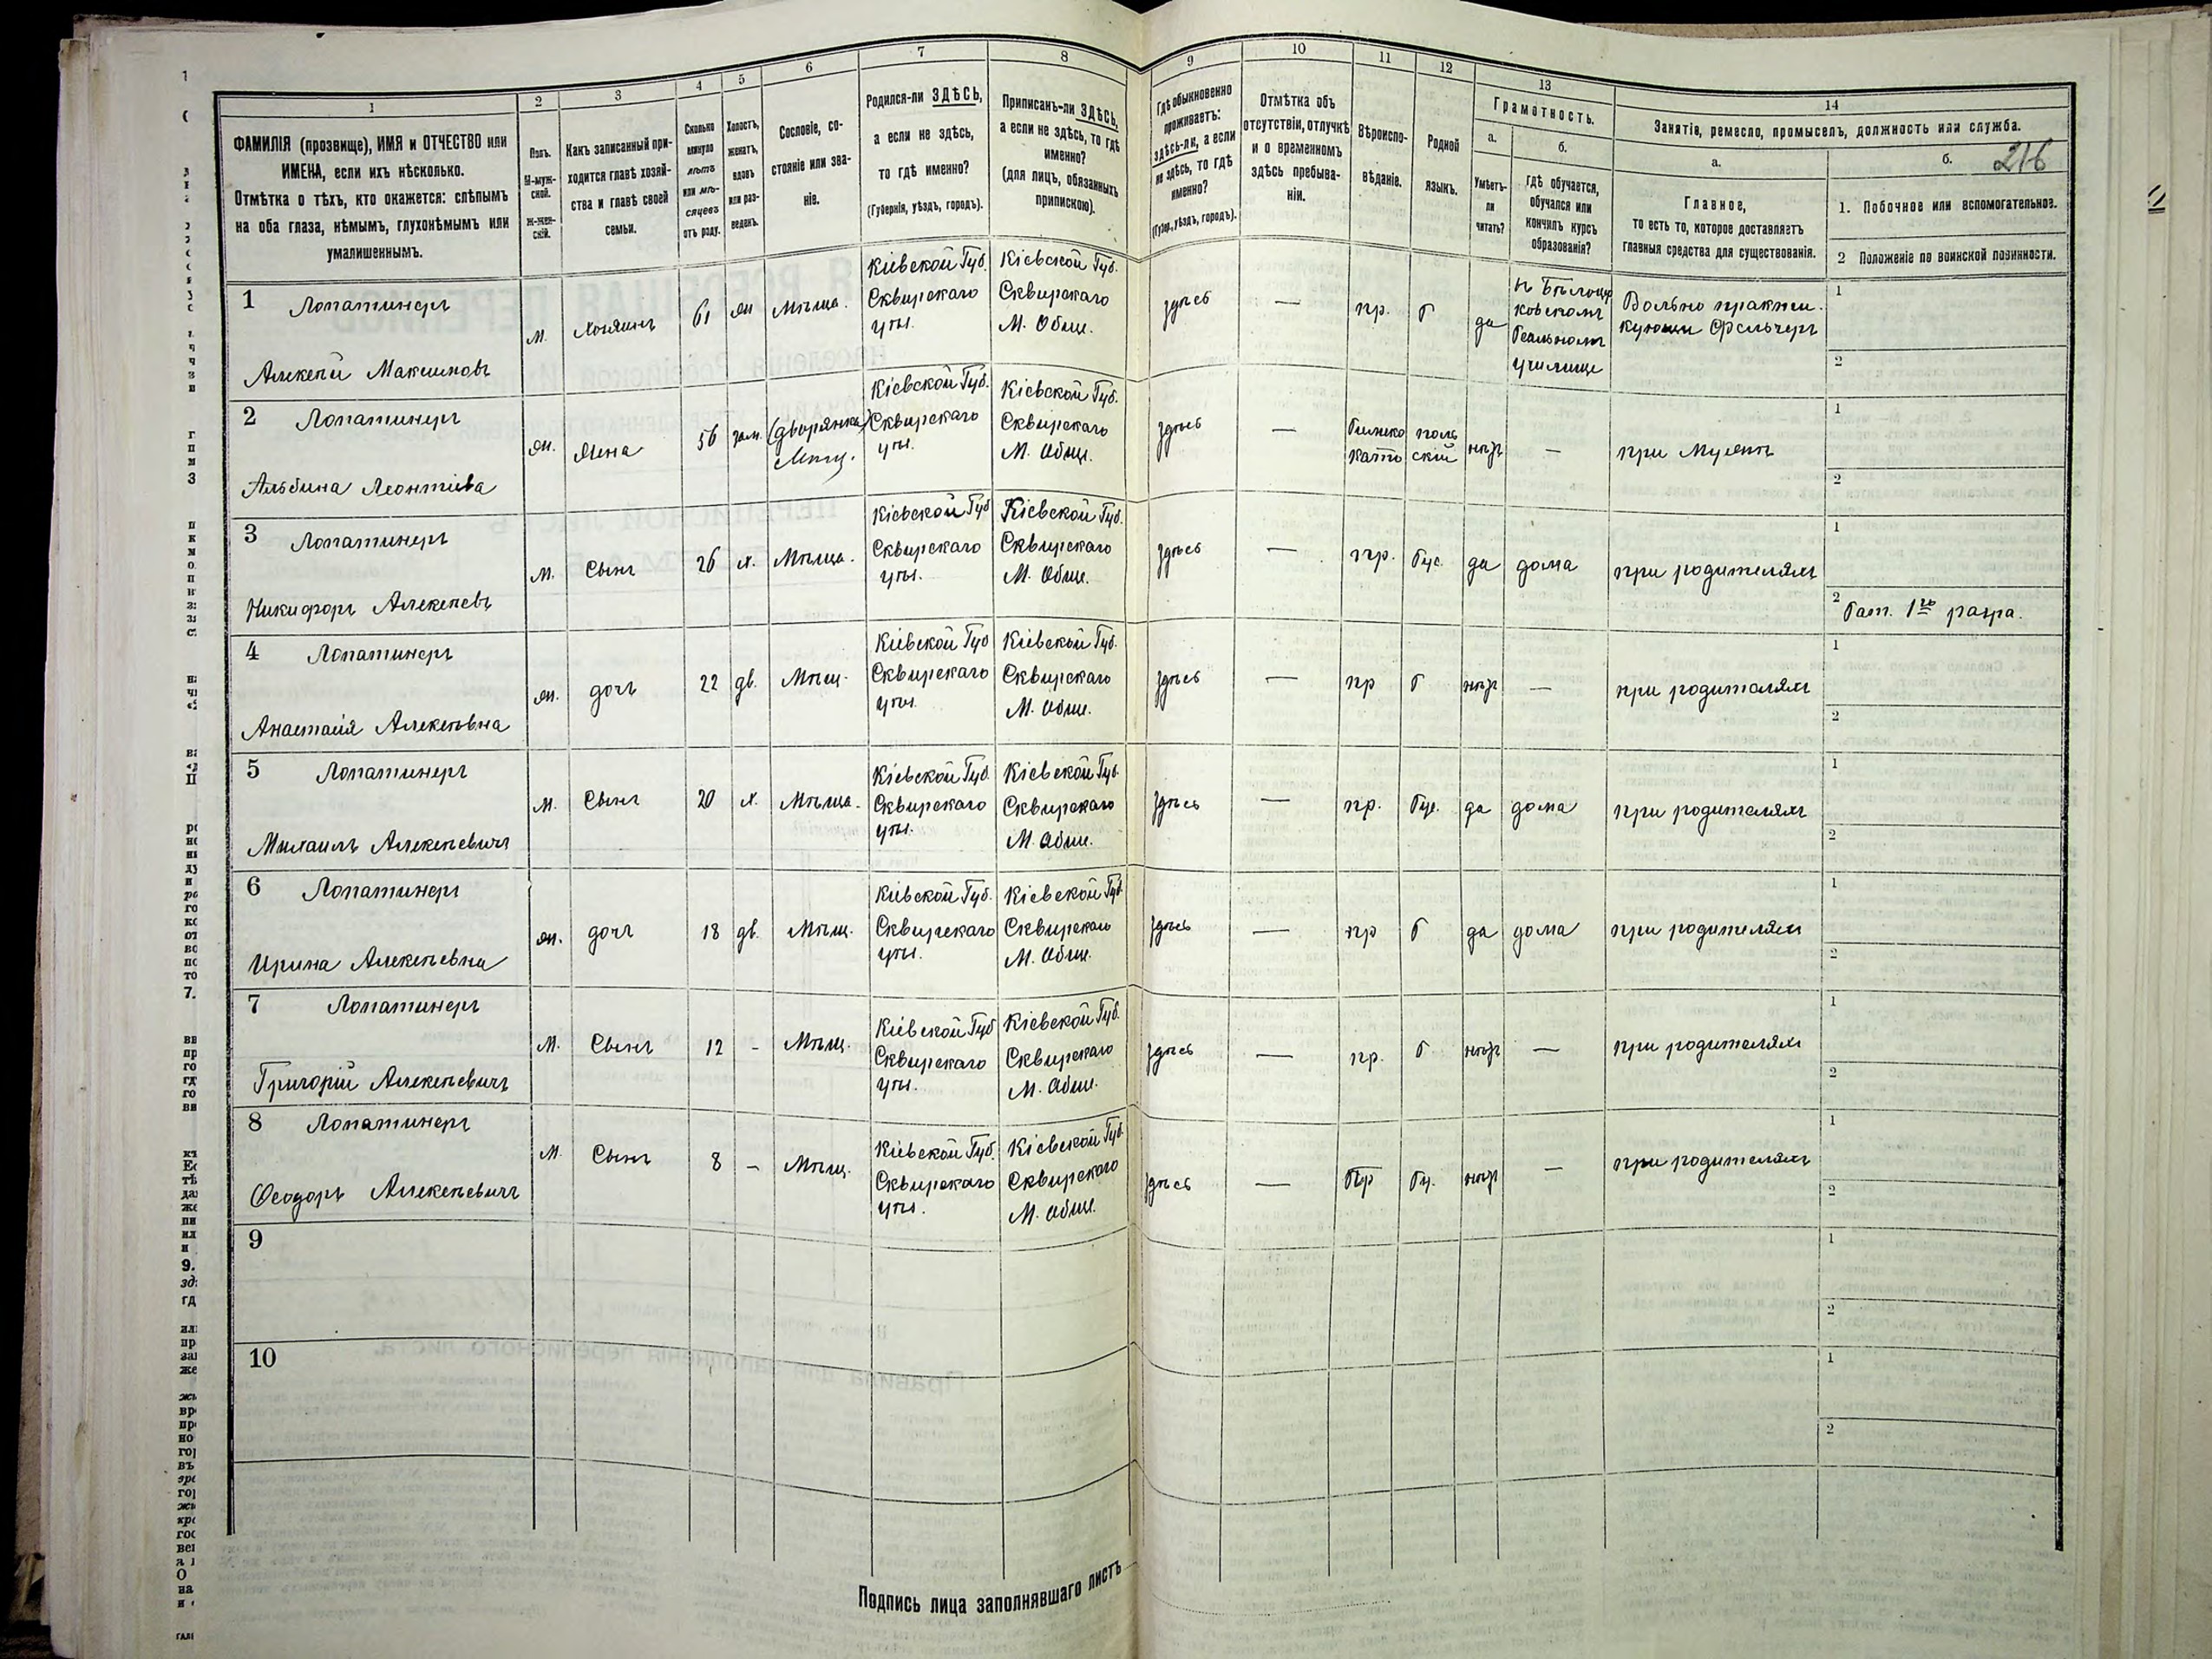 216
1
2
3
4
5
6
7
8
9
10
11
12
13
14
ФАМИЛІЯ (прозвище), ИМЯ и ОТЧЕСТВО или
ИМЕНА, если ихъ нѣсколько.
Отмѣтка о тѣхъ, кто окажется: слѣпымъ
на оба глаза, нѣмымъ, глухонѣмымъ или
умалишеннымъ.
Полъ.
М-муж-
ской.
Ж-жен-
скій.
Какъ записанный при-
ходится главѣ хозяй-
ства и главѣ своей
семьи.
Сколько
минуло
лѣтъ
или мѣ-
сяцевъ
отъ роду.
Холостъ,
женатъ,
вдовъ
или раз-
веденъ.
Сословіе, со-
стояніе или зва-
ніе.
Родился-ли ЗДѢСЬ,
а если не здѣсь,
то гдѣ именно?
(Губернія, уѣздъ, городъ).
Приписанъ-ли ЗДѢСЬ,
а если не здѣсь, то гдѣ
именно?
(для лицъ, обязанныхъ
припискою).
Гдѣ обыкновенно
проживаетъ:
здѣсь-ли, а если
не здѣсь, то гдѣ
именно?
(Губер., уѣздъ, городъ).
Отмѣтка объ
отсутствіи, отлучкѣ
и о временномъ
здѣсь пребыва-
ніи.
Вѣроиспо-
вѣданіе.
Родной
языкъ.
Грамотность.
а.
Умѣетъ-
ли
читать?
б.
гдѣ обучается,
обучался или
кончилъ курсъ
образованія?
Занятіе, ремесло, промыселъ, должность или служба.
а.
Главное,
то есть то, которое доставляетъ
главныя средства для существованія.
б.
1. Побочное или вспомогательное.
2 Положеніе по воинской повинности.
1
Лопатинеръ
Алексѣй Максимовъ
м.
хозяинъ
61
жн
Мѣща.
Кіевской Губ.
Сквирскаго
уѣз.
Кіевской Губ.
Сквирскаго
М. Общ.
здѣсь
—
пр.
Р
да
Реальномъ
училище
Вольно практи-
кующ Фельдшеръ
1
2
2
Лопатинеръ
Альбина Леонтіева
ж.
Жена
56
зам.
(дворянка)
Мѣщ.
Кіевской Губ.
Сквирскаго
уѣз.
Кіевской Губ.
Сквирскаго
М. Общ.
здѣсь
—
Римско
като
поль
скій
нѣтъ
—
при Мужѣ
1
2
3
Лопатинеръ
Никифоръ Алексѣевъ
м.
Сынъ
26
х.
Мѣща.
Кіевской Губ
Сквирскаго
уѣз.
Кіевской Губ.
Сквирскаго
М. Общ.
здѣсь
—
пр.
Рус.
да
дома
при родителяхъ
1
2
Рат. 1го разра.
4
Лопатинеръ
Анастасія Алексѣевна
ж.
дочь
22
дв.
Мѣщ.
Кіевской Губ
Сквирскаго
уѣз.
Кіевской Губ.
Сквирскаго
М. Общ.
здѣсь
—
пр
Р
нѣтъ
—
при родителяхъ
1
2
5
Лопатинеръ
Михаилъ Алексѣевичъ
м.
Сынъ
20
х.
Мѣща.
Кіевской Губ.
Сквирскаго
уѣз.
Кіевской Губ.
Сквирскаго
М. Общ.
здѣсь
—
пр.
Рус.
да
дома
при родителяхъ
1
2
6
Лопатинеръ
Ирина Алексѣевна
ж.
дочь
18
дв.
Мѣщ.
Кіевской Губ.
Сквирскаго
уѣз.
Кіевской Губ.
Сквирскаго
М. Общ.
здѣсь
—
пр
Р
да
дома
при родителяхъ
1
2
7
Лопатинеръ
Григорій Алексѣевичъ
м.
Сынъ
12
-
Мѣщ.
Кіевской Губ
Сквирскаго
уѣз.
Кіевской Губ.
Сквирскаго
М. Общ.
здѣсь
—
пр.
Р
нѣтъ
—
при родителяхъ
1
2
8
Лопатинеръ
Ѳеодоръ Алексѣевичъ
м.
Сынъ
8
-
Мѣщ.
Кіевской Губ.
Сквирскаго
уѣз.
Кіевской Губ.
Сквирскаго
М. Общ.
здѣсь
—
Пр
Ру.
нѣтъ
—
при родителяхъ
1
2
9
1
2
10
1
2
Подпись лица заполнявшаго листъ